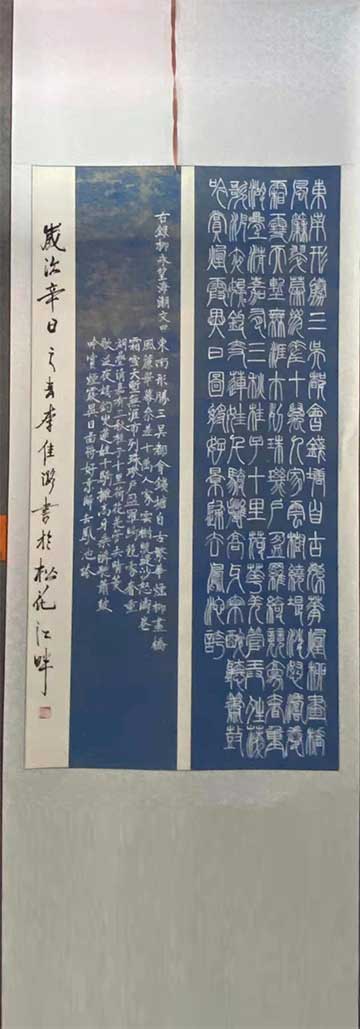 東南形勝三吳都會錢塘自古繁華煙柳畫橋
風簾翠幕參差十萬人家雲樹繞堤沙怒濤卷
霜雪天塹無涯市列珠璣戶盈羅綺競豪奢重
湖疊巘清嘉有三秋桂子十里荷花羌管弄晴菱
歌泛夜嬉嬉釣叟蓮娃千騎擁高牙乘醉聽簫鼓
吟賞煙霞異日圖將好景歸去鳳池誇
右錄柳永望海潮文曰 東南形勝三吳都會錢塘自古繁華煙柳畫橋
風簾翠幕參差十萬人家雲樹繞堤沙怒濤卷
霜雪天塹無涯市列珠璣戶盈羅綺競豪奢重
湖疊巘清嘉有三秋桂子十里荷花羌管弄晴菱
歌泛夜嬉嬉釣叟蓮娃千騎擁高牙乘醉聽簫鼓
吟賞煙霞異日圖將好景歸去鳳池誇
歲次辛丑之春李佳書於松花江畔